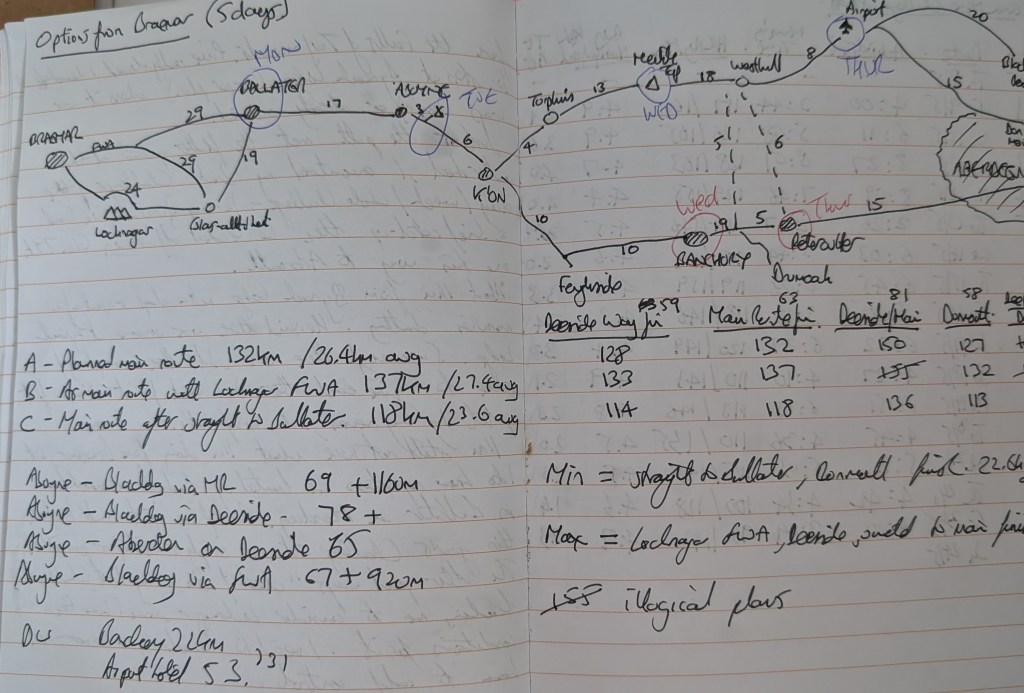 Options from Braemar (5 days)
MON
BALLATER
29
17
ABOYNE
3
8
TUE
BRAEMAR
FWA
29
19
24
Lochnagar
Glas-allt-Shiel
6
K'ON
4
Torphins
13
WED
18
Westhill
8
Airport
THUR
20
15
ABERDEEN
5
6
Wed
Thur
10
10
19
5
15
BANCHORY
Peterculter
Drumoak
59
63
81
58
Deeside Way fin
Main Route fin.
Deeside/Main
128 132 150 127
133 137 155 132
114 118 136 113
A - Planned main route 132km / 26.4km avg
B - As main route with Lochnagar FWA 137km / 27.4 avg
C - Main route after straight to Ballater. 118km / 23.6 avg
Aboyne - Blackdog via MR 69 + 1160m
Aboyne - Blackdog via Deeside - 78 +
Aboyne - Aberdeen on Deeside 65
Aboyne - Blackdog via FWA 67 + 920m
Min = straight to Ballater, finish. 22.6k
Max = Lochnagar FWA, Deeside, to main finish
155 illogical plans
Airport hotel 53, 31